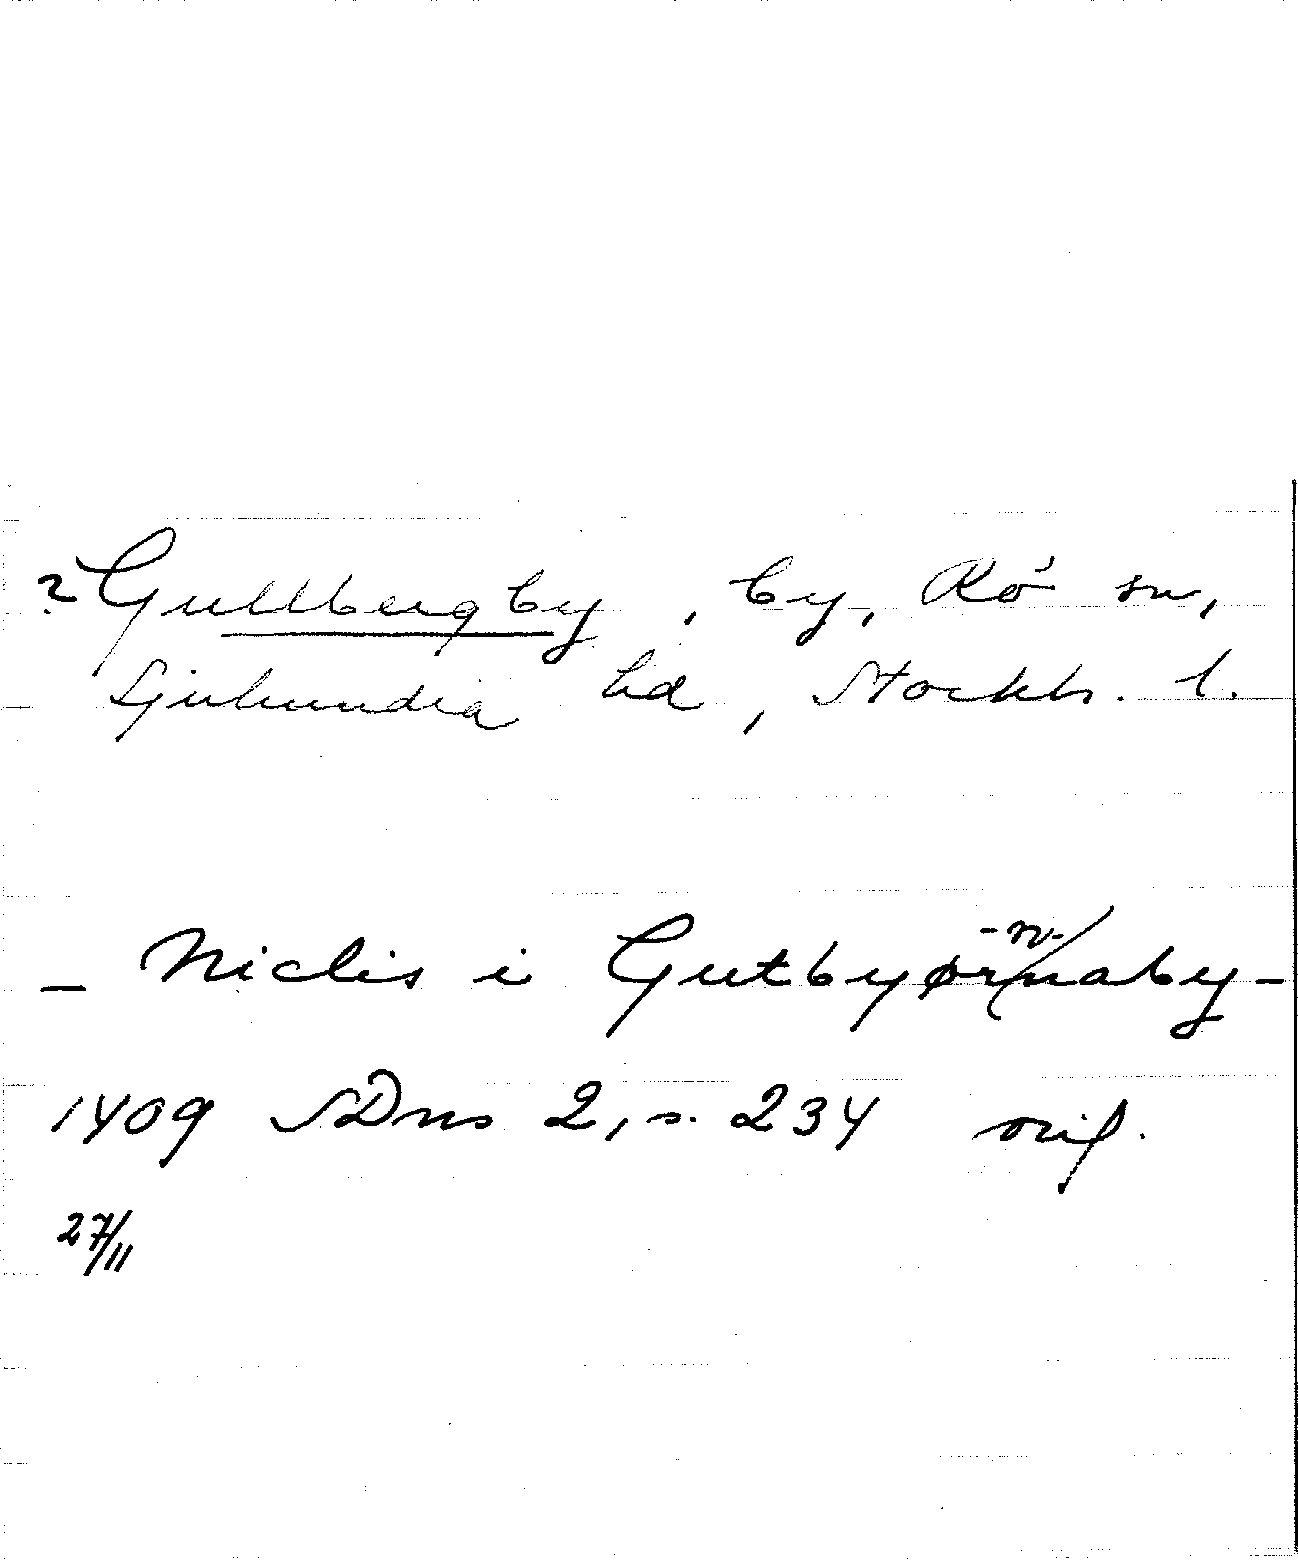 ? Gullbergby, by, Rö sn,
Sjuhundra hd, Stockh. l.
-n-
_ Niclis i Gutbyørnaby -
1409 SDns 2, s. 234 orig.
27/11